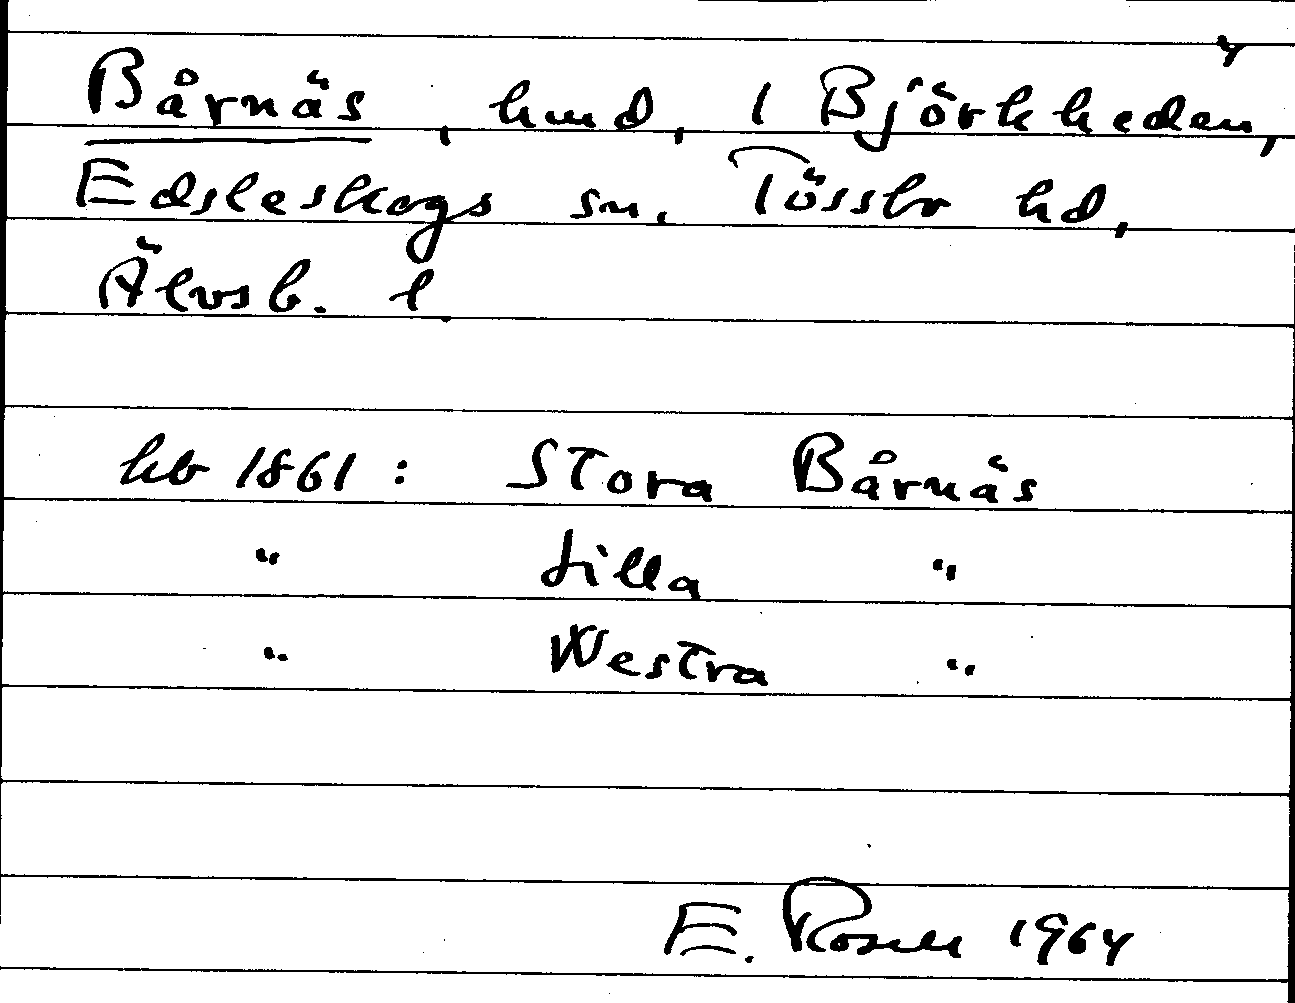 4
Bårnäs, hmd, 1 Björkheden,
Edsleskogs sn. Tössbo hd,
Älvsb. l.
hb 1861: Stora Bårnäs
" Lilla "
" Westra "
E. Rosell 1964